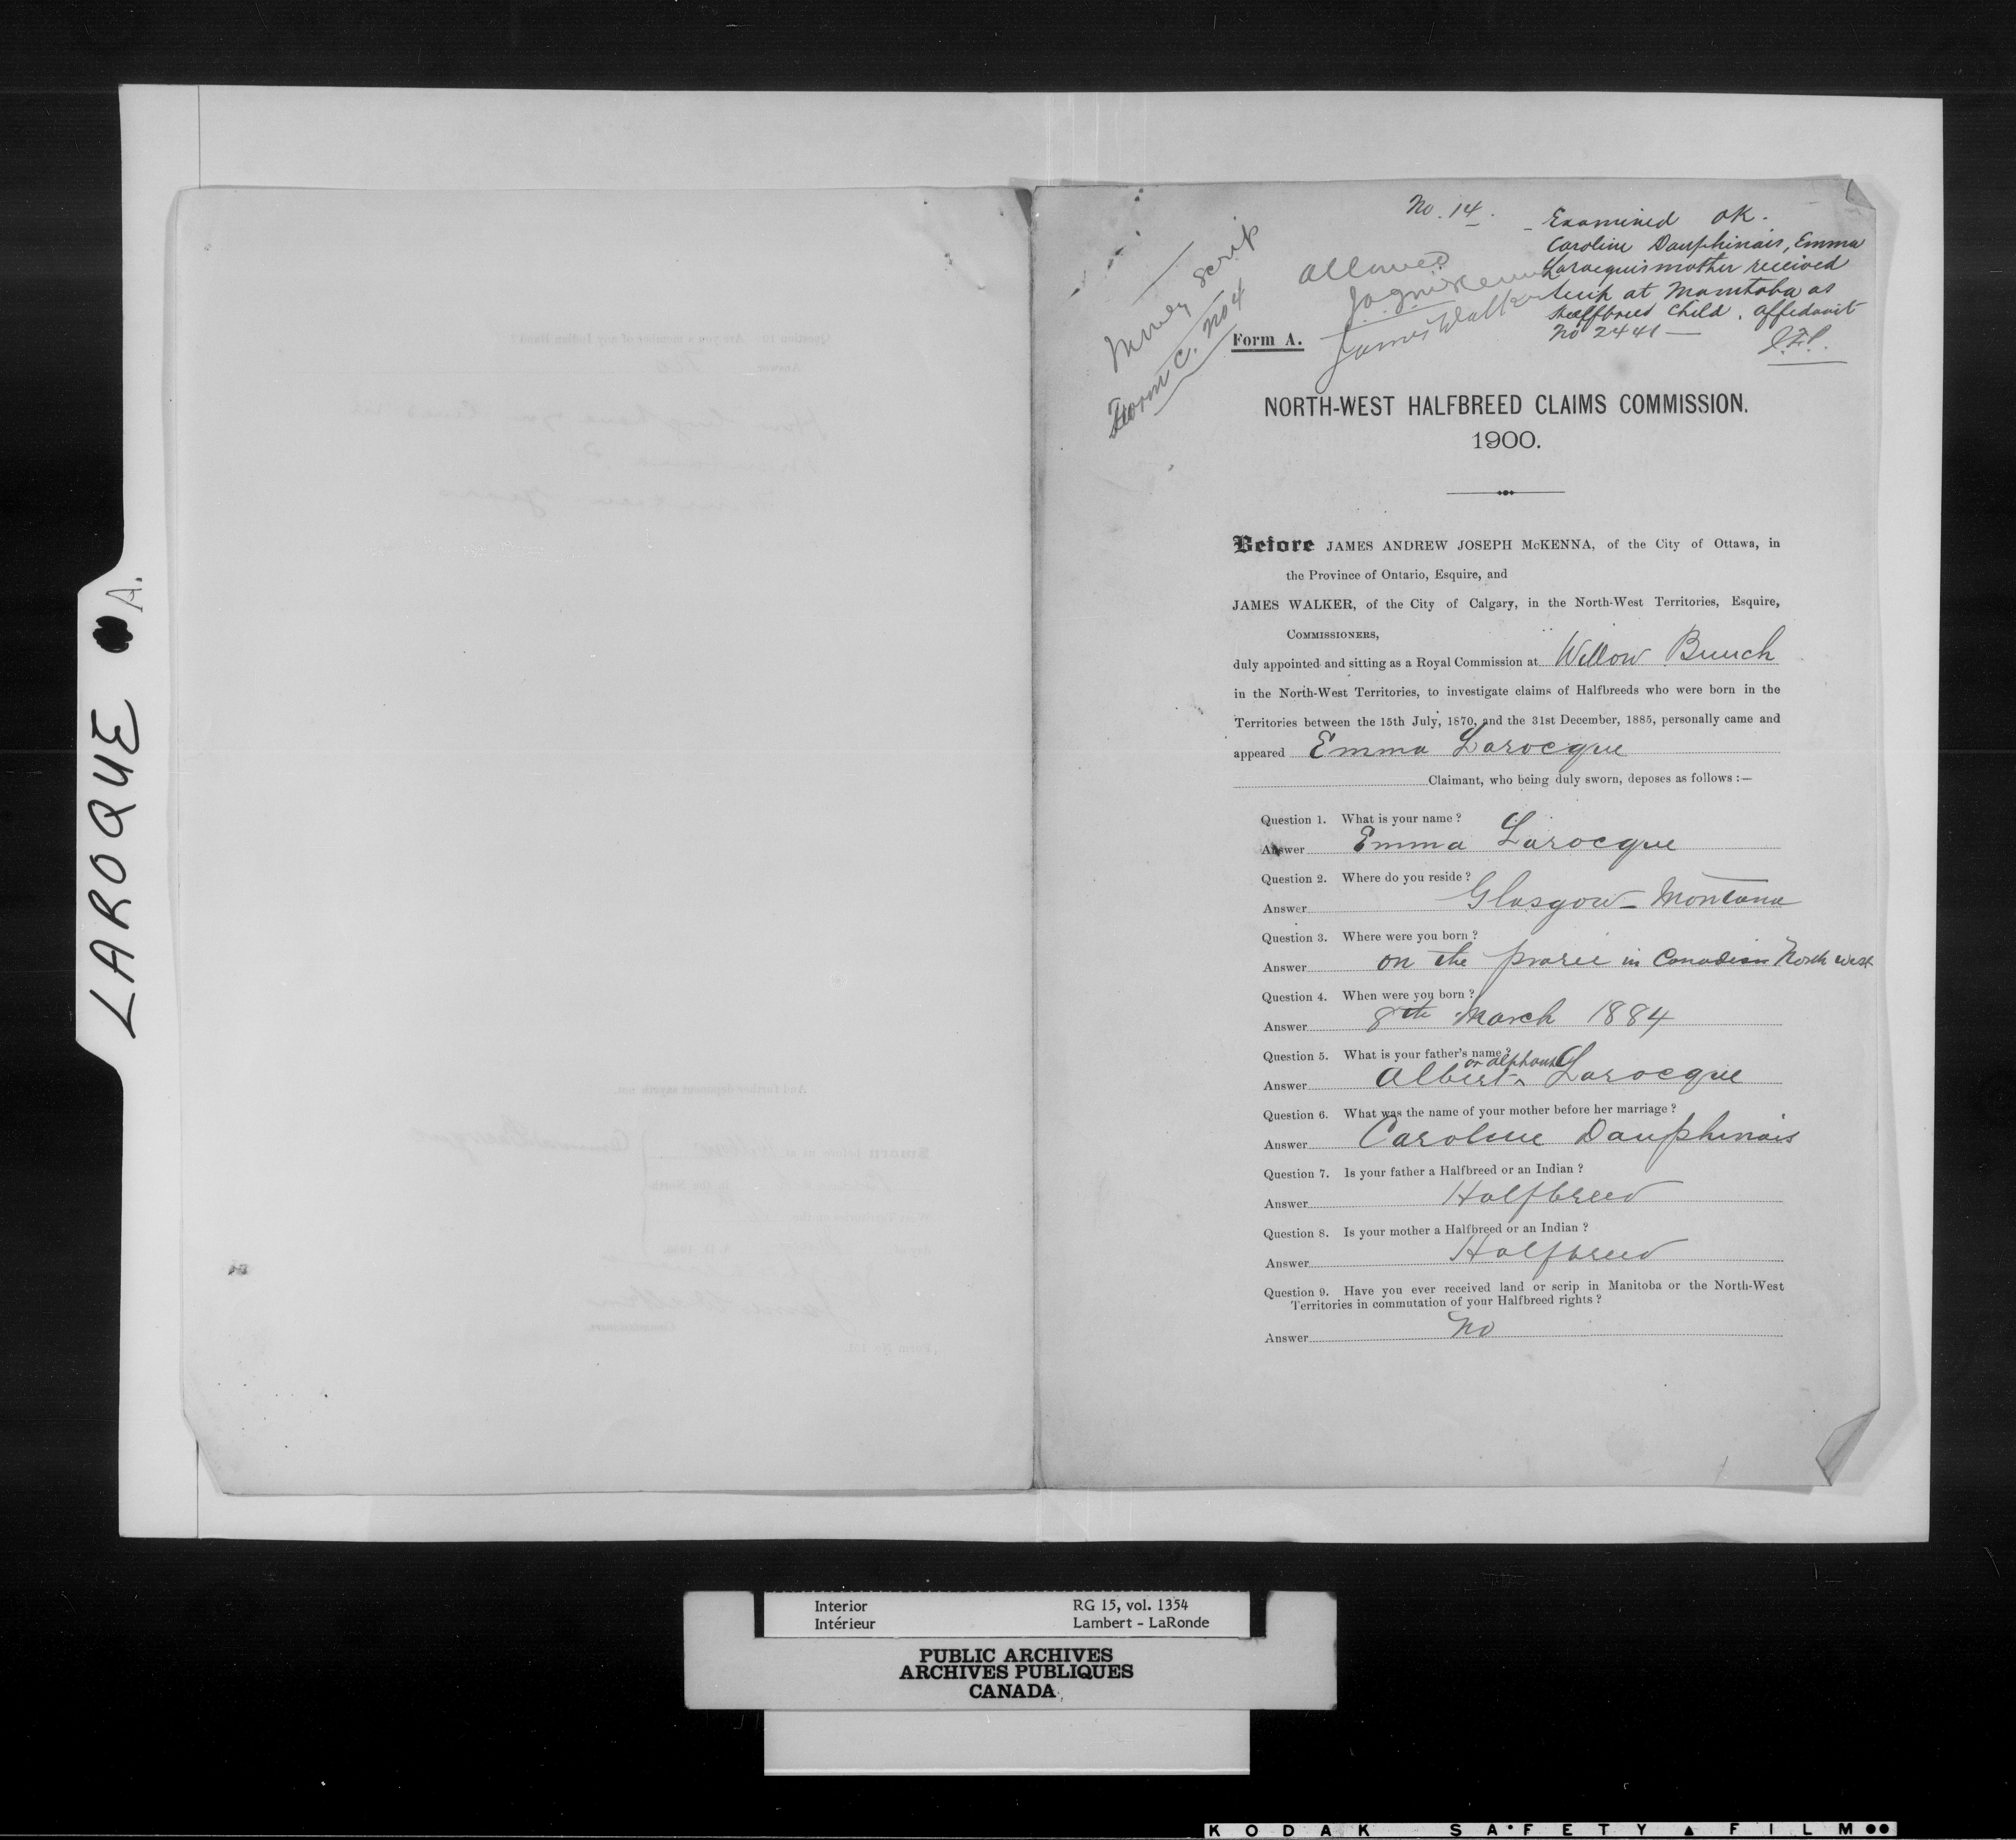 LAROQUE A.
No. 14.
Examined OK.
Caroline Dauphinais, Emma
Larocque's mother received
scrip at Manitoba as
Halfbreed child. Affidavit
No 2441 —
Allowed
J.A.J. McKenna
James Walker
Money Scrip
Form C. No 4
Form A.
NORTH-WEST HALFBREED CLAIMS COMMISSION.
1900.
Before JAMES ANDREW JOSEPH McKENNA, of the City of Ottawa, in
the Province of Ontario, Esquire, and
JAMES WALKER, of the City of Calgary, in the North-West Territories, Esquire,
COMMISSIONERS,
duly appointed and sitting as a Royal Commission at Willow Bunch
in the North-West Territories, to investigate claims of Halfbreeds who were born in the
Territories between the 15th July, 1870, and the 31st December, 1885, personally came and
appeared Emma Larocque
Claimant, who being duly sworn, deposes as follows :—
Question 1. What is your name ?
Answer Emma Larocque
Question 2. Where do you reside ?
Answer Glasgow - Montana
Question 3. Where were you born ?
Answer on the prarie in Canadian North West
Question 4. When were you born ?
Answer 8th March 1884
Question 5. What is your father's name ?
or alphonse
Answer Albert ^ Larocque
Question 6. What was the name of your mother before her marriage ?
Answer Caroline Dauphinais
Question 7. Is your father a Halfbreed or an Indian ?
Answer Halfbreed
Question 8. Is your mother a Halfbreed or an Indian ?
Answer Halfbreed
Question 9. Have you ever received land or scrip in Manitoba or the North-West
Territories in commutation of your Halfbreed rights ?
Answer No
Interior RG 15, vol. 1354
Intérieur Lambert - LaRonde
PUBLIC ARCHIVES
ARCHIVES PUBLIQUES
CANADA
KODAK SAFETY FILM